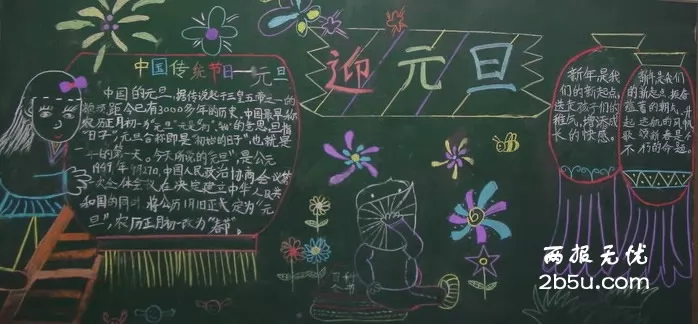 中国传统节日——元旦
中国的元旦,据传说起于三皇五帝之一的
颛顼,距今已有3000多年的历史。中国最早称
农历正月初一为"元旦"元是"初""始"的意思,旦指
"日子",元旦合称即是"初始的日子",也就是
一年的第一天。今天所说的"元旦",是公元
1949年9月27日,中国人民政治协商会议第
一次全体会议在决定建立中华人民共
和国的同时,将公历1月1日正式定为"元
旦",农历正月初一改为"春节"。
迎元旦
新年,是我
们的新起点,
孩子们的
稚气,增添成
长的快感。
新年是我们
的新起点
着的朝
起远航的风帆
两报无忧
2b5u.com